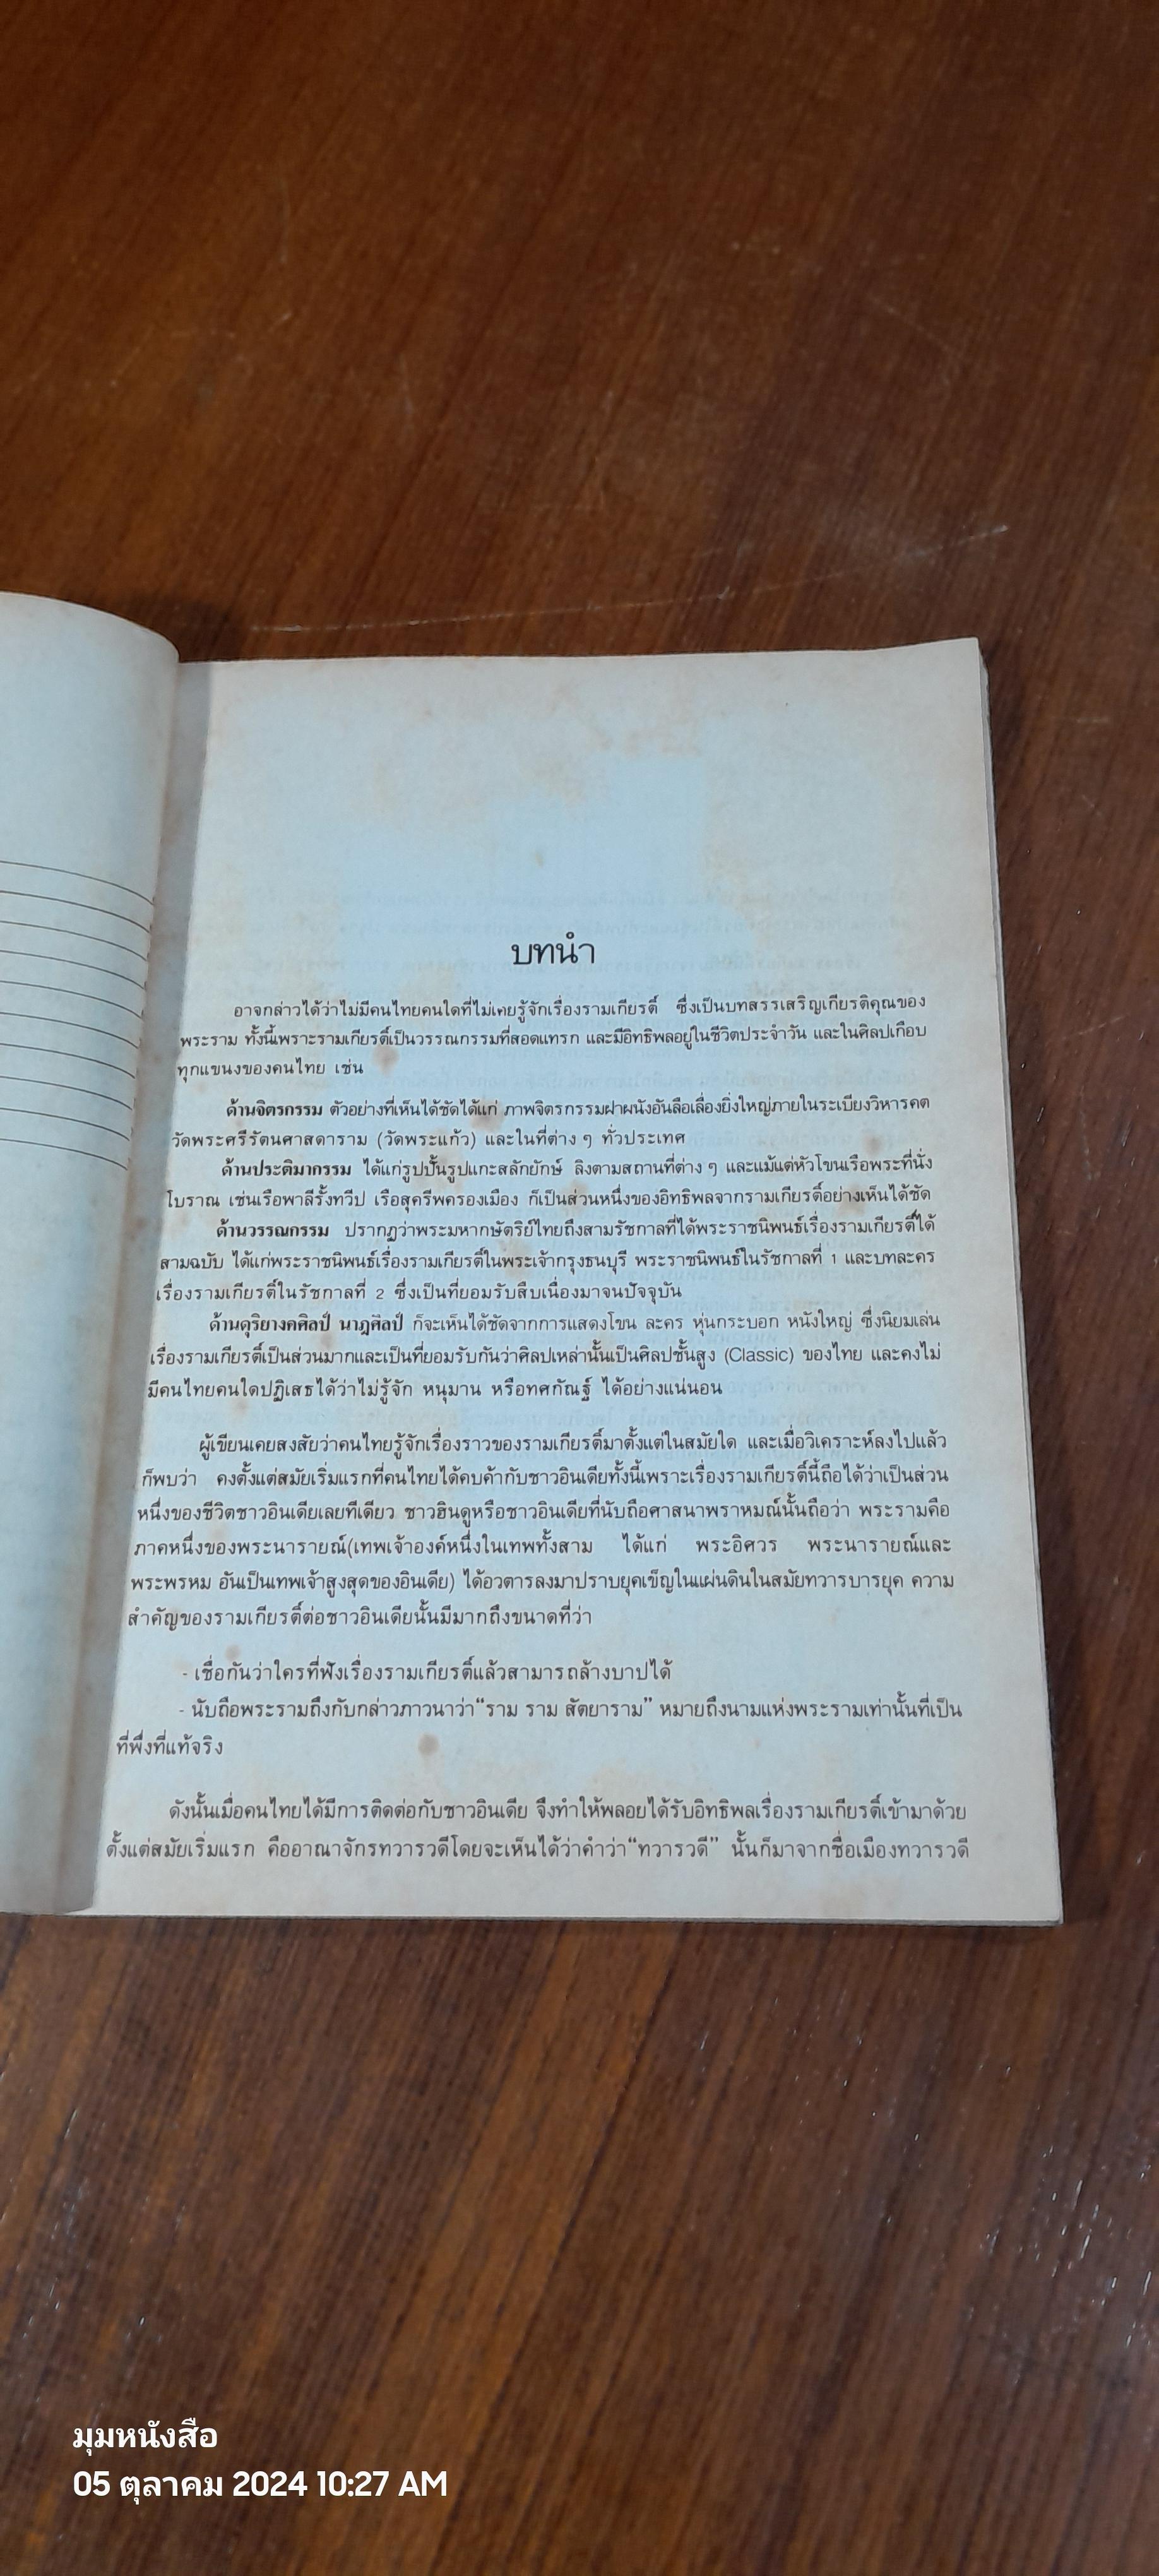 บทนำ
อาจกล่าวได้ว่าไม่มีคนไทยคนใดที่ไม่เคยรู้จักเรื่องรามเกียรติ์ ซึ่งเป็นบทสรรเสริญเกียรติคุณของ
พระราม ทั้งนี้เพราะรามเกียรติ์เป็นวรรณกรรมที่สอดแทรก และมีอิทธิพลอยู่ในชีวิตประจำวัน และในศิลปเกือบ
ทุกแขนงของคนไทย เช่น
ด้านจิตรกรรม ตัวอย่างที่เห็นได้ชัดได้แก่ ภาพจิตรกรรมฝาผนังอันลือเลื่องยิ่งใหญ่ภายในระเบียงวิหารคต
วัดพระศรีรัตนศาสดาราม (วัดพระแก้ว) และในที่ต่าง ๆ ทั่วประเทศ
ด้านประติมากรรม ได้แก่รูปปั้นรูปแกะสลักยักษ์ ลิงตามสถานที่ต่าง ๆ และแม้แต่หัวโขนเรือพระที่นั่ง
โบราณ เช่นเรือพาลีรั้งทวีป เรือสุครีพครองเมือง ก็เป็นส่วนหนึ่งของอิทธิพลจากรามเกียรติ์อย่างเห็นได้ชัด
ด้านวรรณกรรม ปรากฏว่าพระมหากษัตริย์ไทยถึงสามรัชกาลที่ได้พระราชนิพนธ์เรื่องรามเกียรติ์ได้
สามฉบับ ได้แก่พระราชนิพนธ์เรื่องรามเกียรติ์ในพระเจ้ากรุงธนบุรี พระราชนิพนธ์ในรัชกาลที่ 1 และบทละคร
เรื่องรามเกียรติ์ในรัชกาลที่ 2 ซึ่งเป็นที่ยอมรับสืบเนื่องมาจนปัจจุบัน
ด้านดุริยางคศิลป์ นาฏศิลป์ ก็จะเห็นได้ชัดจากการแสดงโขน ละคร หุ่นกระบอก หนังใหญ่ ซึ่งนิยมเล่น
เรื่องรามเกียรติ์เป็นส่วนมากและเป็นที่ยอมรับกันว่าศิลปเหล่านั้นเป็นศิลปชั้นสูง (Classic) ของไทย และคงไม่
มีคนไทยคนใดปฏิเสธได้ว่าไม่รู้จัก หนุมาน หรือทศกัณฐ์ ได้อย่างแน่นอน
ผู้เขียนเคยสงสัยว่าคนไทยรู้จักเรื่องราวของรามเกียรติ์มาตั้งแต่ในสมัยใด และเมื่อวิเคราะห์ลงไปแล้ว
ก็พบว่า คงตั้งแต่สมัยเริ่มแรกที่คนไทยได้คบค้ากับชาวอินเดียทั้งนี้เพราะเรื่องรามเกียรติ์นี้ถือได้ว่าเป็นส่วน
หนึ่งของชีวิตชาวอินเดียเลยทีเดียว ชาวฮินดูหรือชาวอินเดียที่นับถือศาสนาพราหมณ์นั้นถือว่า พระรามคือ
ภาคหนึ่งของพระนารายณ์(เทพเจ้าองค์หนึ่งในเทพทั้งสาม ได้แก่ พระอิศวร พระนารายณ์และ
พระพรหม อันเป็นเทพเจ้าสูงสุดของอินเดีย) ได้อวตารลงมาปราบยุคเข็ญในแผ่นดินในสมัยทวารบารยุค ความ
สำคัญของรามเกียรติ์ต่อชาวอินเดียนั้นมีมากถึงขนาดที่ว่า
- เชื่อกันว่าใครที่ฟังเรื่องรามเกียรติ์แล้วสามารถล้างบาปได้
- นับถือพระรามถึงกับกล่าวภาวนาว่า“ราม ราม สัตยาราม” หมายถึงนามแห่งพระรามเท่านั้นที่เป็น
ที่พึ่งที่แท้จริง
ดังนั้นเมื่อคนไทยได้มีการติดต่อกับชาวอินเดีย จึงทำให้พลอยได้รับอิทธิพลเรื่องรามเกียรติ์เข้ามาด้วย
ตั้งแต่สมัยเริ่มแรก คืออาณาจักรทวารวดีโดยจะเห็นได้ว่าคำว่า“ทวารวดี” นั้นก็มาจากชื่อเมืองทวารวดี
มุมหนังสือ
05 ตุลาคม 2024 10:27 AM